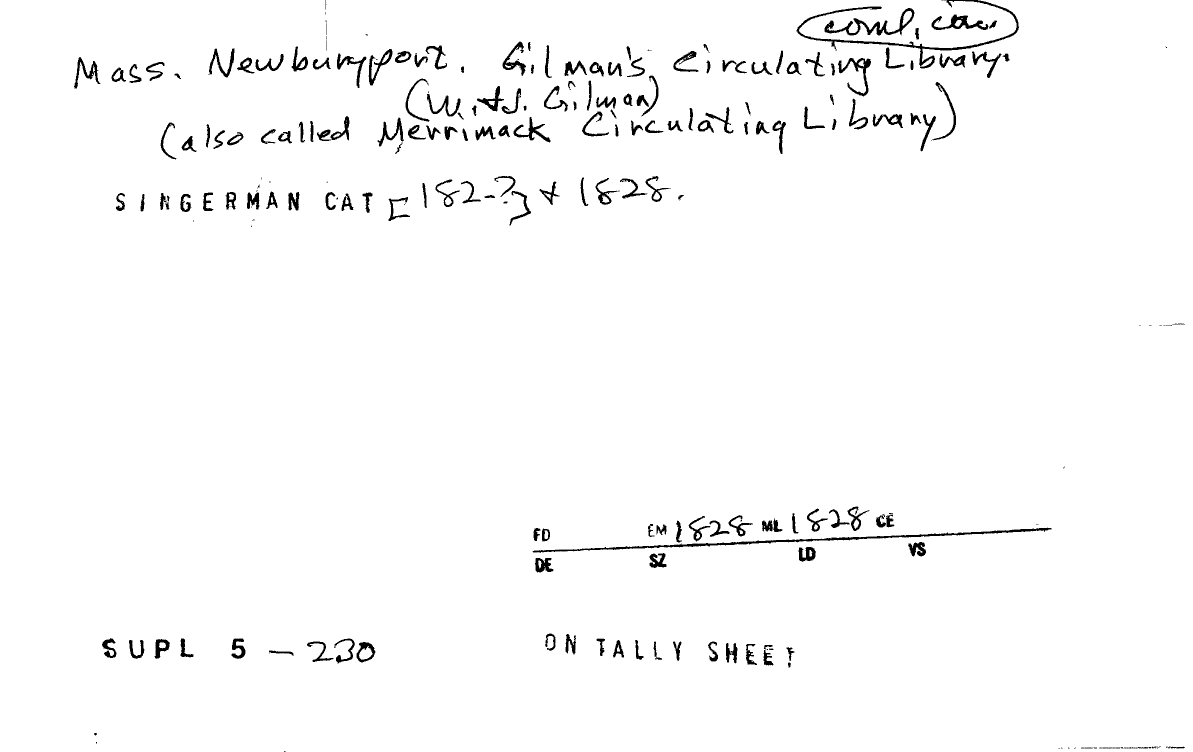 coml, circ
Mass. Newburyport. Gilman's Circulating Library.
(W. & J. Gilman)
(also called Merrimack Circulating Library)
SINGERMAN CAT [182-?] & 1828.
FD EM 1828 ML 1828 CE
DE SZ LD VS
SUPL 5 – 230 ON TALLY SHEET